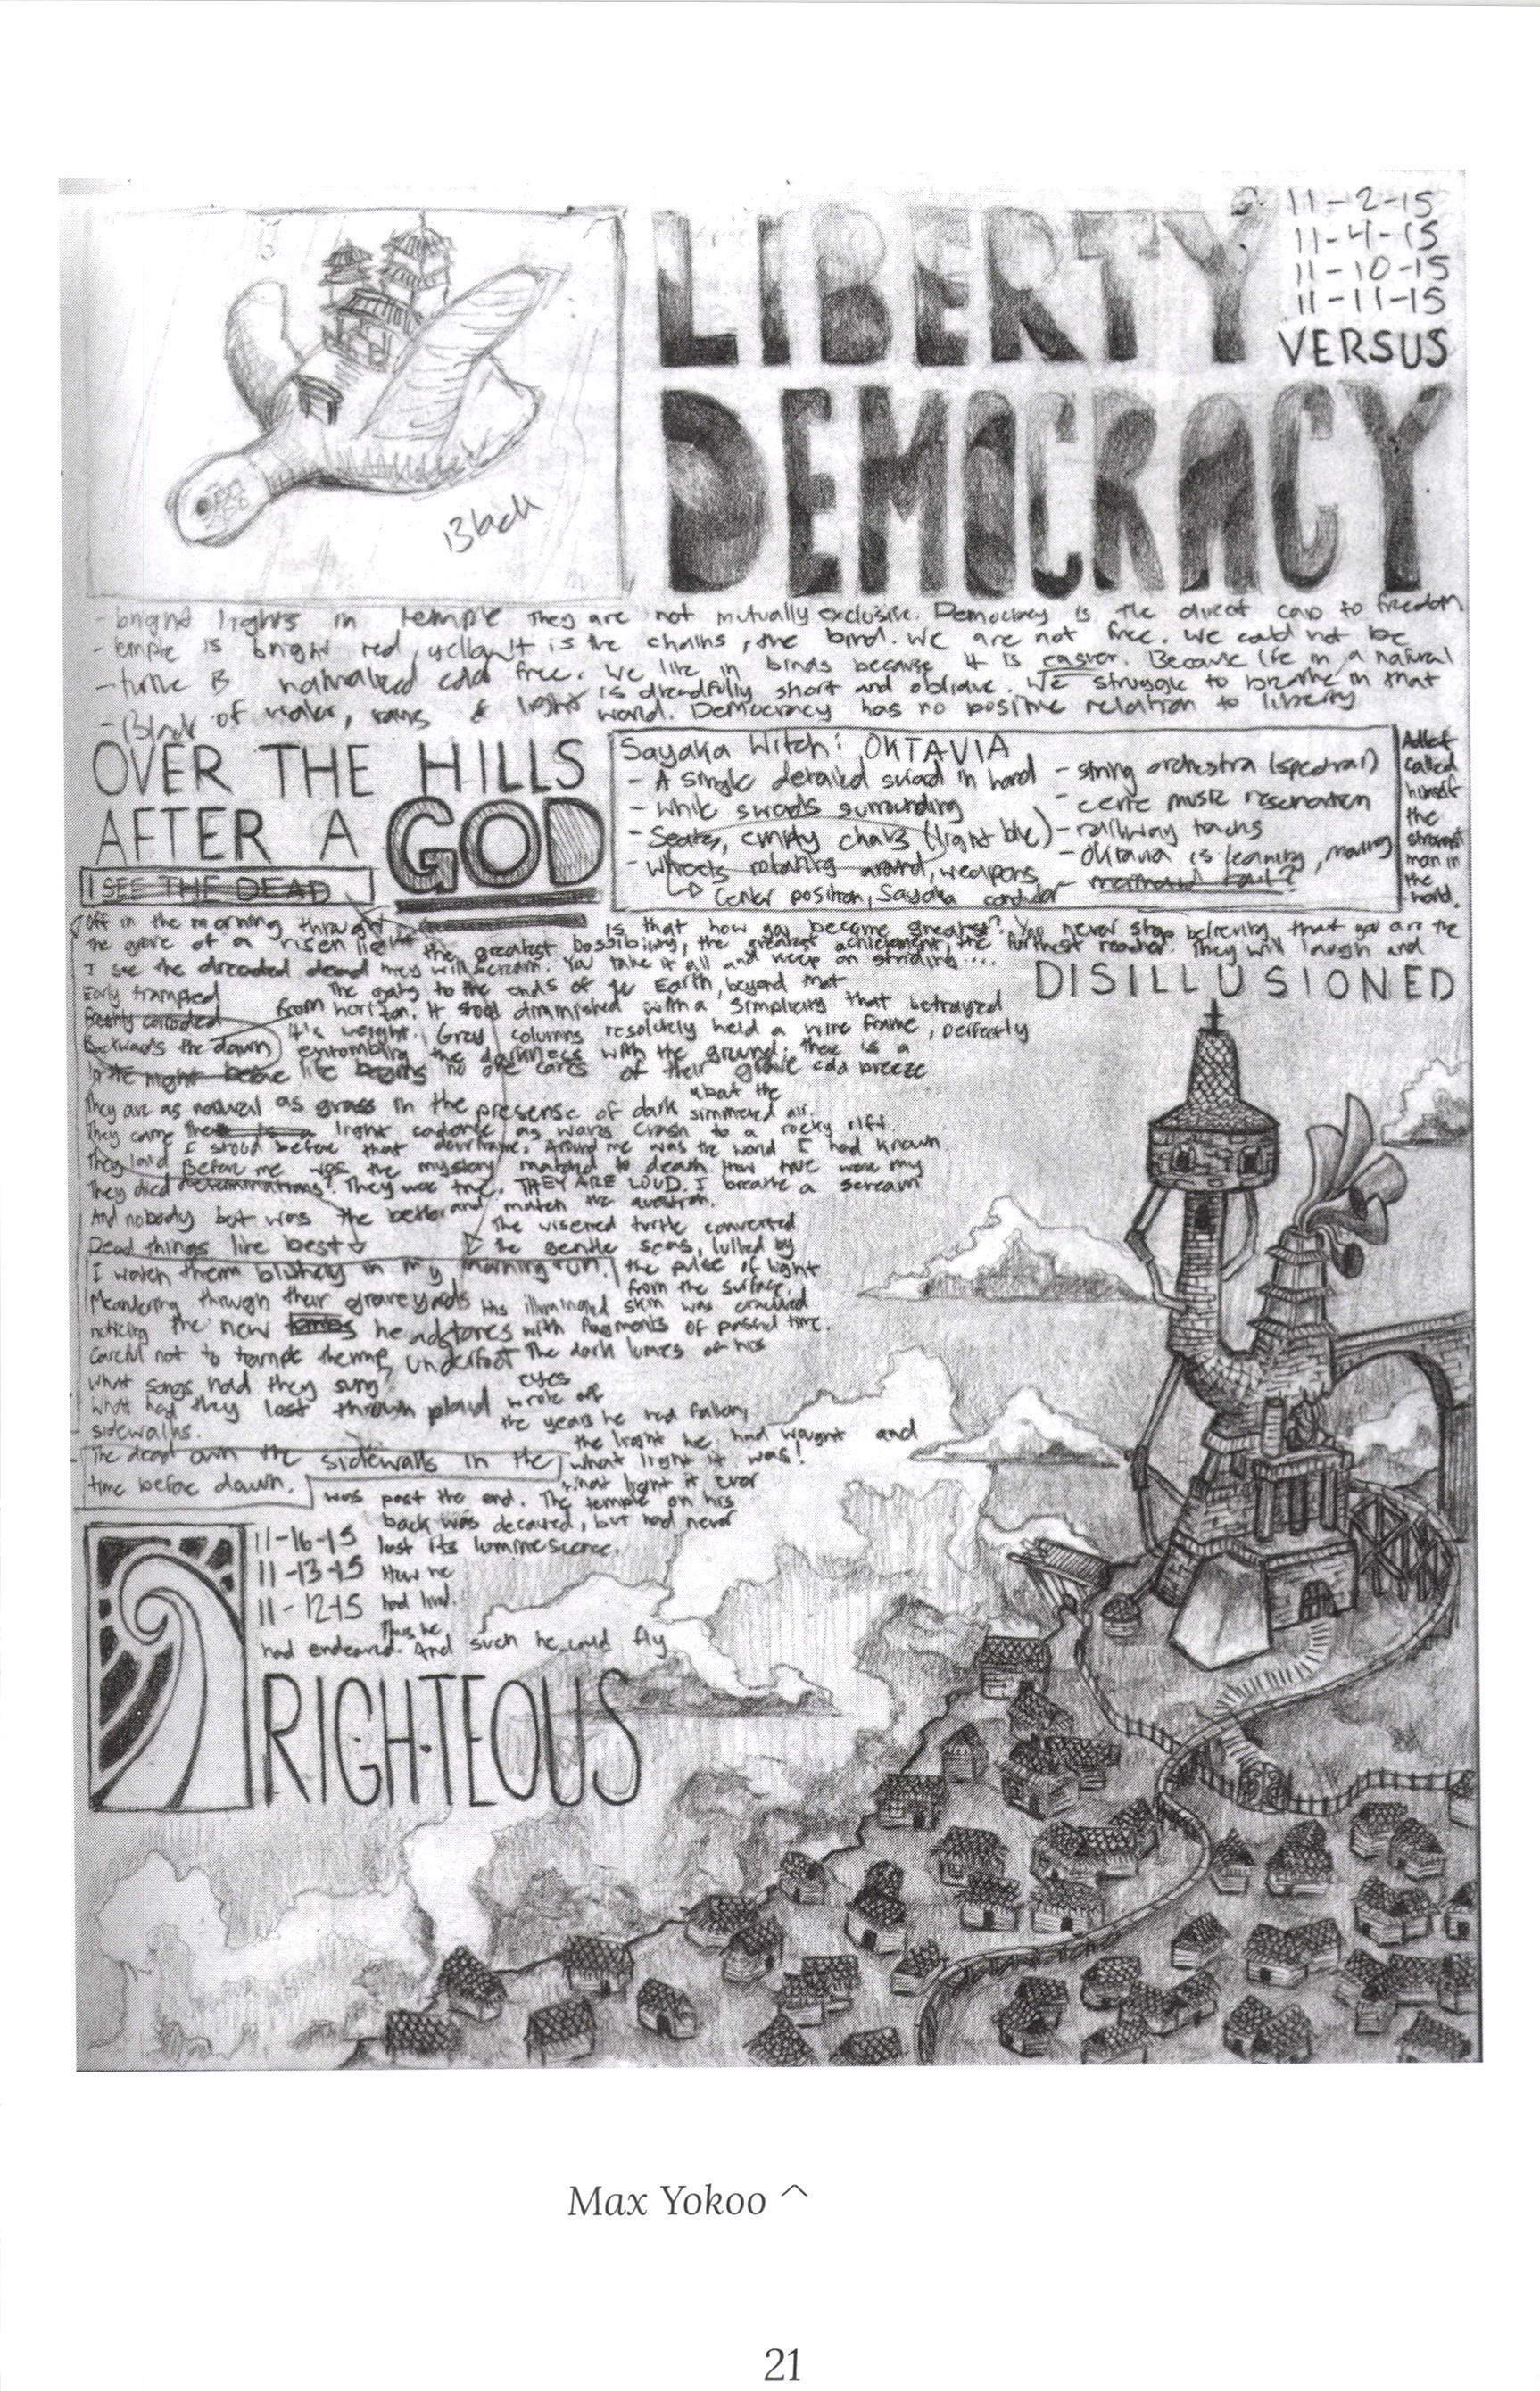 LIBERTY
11-2-15
11-4-15
11-10-15
11-11-15
VERSUS
DEMOCRACY
Black
- bright lights in temple They are not mutually exclusive. Democracy is the direct to freedom
is bright red, yellow It is the chains, the bird. We are not free. We could not be
naturalized free. We like in binds because it is easier. Because life in a natural
of water, & light is dreadfully short and We struggle to breathe in that
world. Democracy has no positive relation to liberty
OVER THE HILLS
AFTER A GOD
I SEE THE DEAD
Sayaka Witch: OKTAVIA
- A single detailed sword in hand
- white swords surrounding
- Seats, empty chairs (light ble)
- Wheels rotating around, weapons
Center position, Sayaka
- string orchestra (spectral)
- eerie music
- railway tracks
- Oktavia is leaning, moving
- mermaid tail?
called
himself
the
strongest
man in
the
world.
Off in the morning through
the grove of a risen light
I see the dreaded dead
Early trampled
Backwards the dawn
Is that how you become greatest? You never stop believing that you are the
the greatest possibility, the greatest achievement, the furthest reacher. They will laugh and
they will scream. You take it all and keep on striding....
DISILLUSIONED
The gates to the ends of the Earth, beyond that
from horizon. It stood diminished with a simplicity that betrayed
it's weight. Grey columns resolutely held a wire frame, perfectly
entombing the darkness with the ground; there is a
no one cares of their grave cold breeze
They are as natural as grass in the presense of dark simmered air.
about the
They came light as waves crash to a rocky rift.
I stood before that doorframe. Around me was the world I had known
They laid Before me was the mystery matched to death. How true were my
They died determinations? They were true. THEY ARE LOUD. I breathe a scream
And nobody but was the better and match the
Dead things live best
I watch them blithely in my morning run.
Meandering through their graveyards
noticing the new headstones
Careful not to underfoot
What songs had they sung
What had they lost through plaid
sidewalks.
The dead own the sidewalks in the
time before dawn.
The wisened turtle converted
the gentle seas, lulled by
the pulse of light
from the surface.
His illuminated skin was cracked
with fragments of passed time.
The dark lumes of his
eyes
wrote off
the years he had fallen,
the light he had wrought and
what light it was!
what light it ever
was past the end. The temple on his
back was decayed, but had never
lost its luminescence.
How he
had lived.
Thus he
had endeared. And such he could fly
11-16-15
11-13-15
11-12-15
RIGHTEOUS
Max Yokoo ^
21